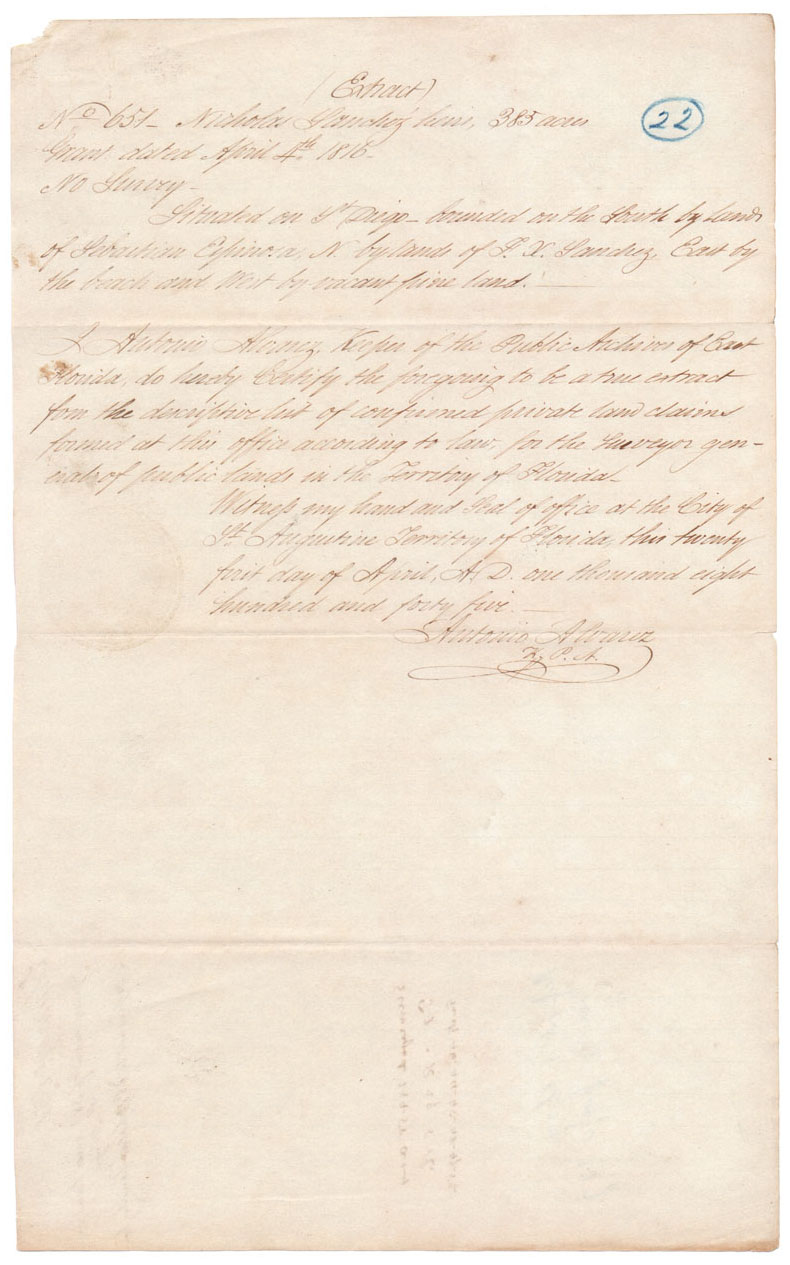 (Extract)
No 651 - Nicholas Sanchez heirs, 385 acres
22
Grant dated April 4th 1816 -
No Survey -
Situated on St Diego - bounded on the South by lands
of Sebastian Espinosa, N. by lands of F. X. Sanchez, East by
the beach and West by vacant pine land. -
I Antonio Alvarez, Keeper of the Public Archives of East
Florida, do hereby Certify the foregoing to be a true extract
from the descriptive list of confirmed private land claims
formed at this office according to law, for the Surveyor gen-
erals of public lands in the Territory of Florida -
Witness my hand and Seal of office at the City of
St. Augustine Territory of Florida, this twenty
first day of April, A. D. one thousand eight
hundred and forty five. -
Antonio Alvarez
K. P. A.